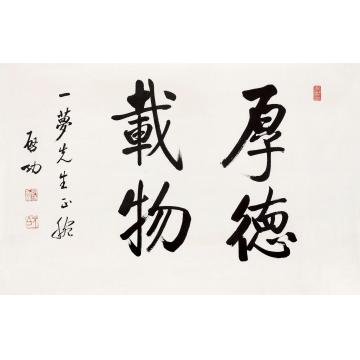 厚德
載物
一夢先生正腕
启功